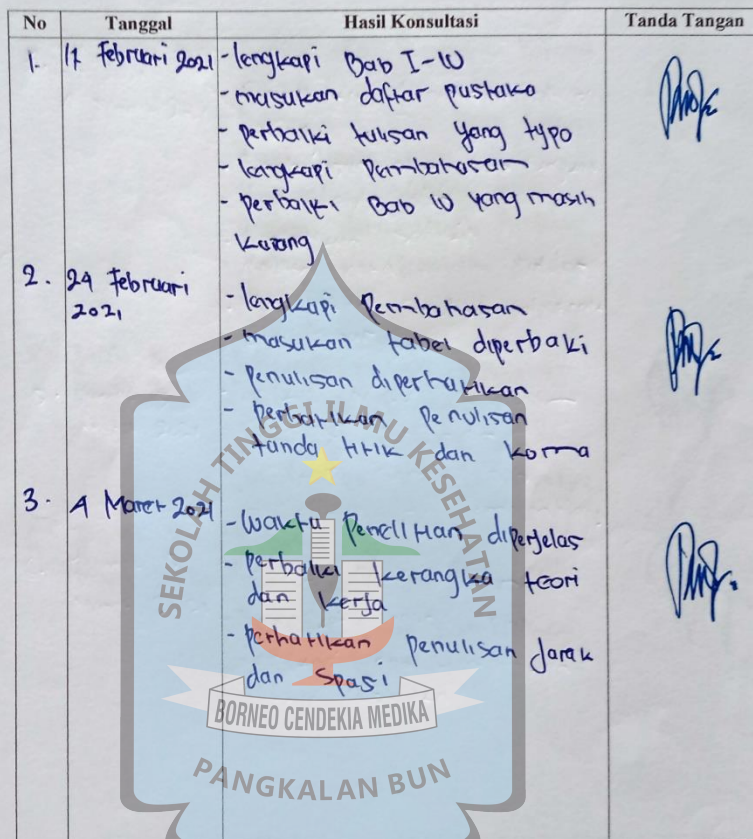 No Tanggal Hasil Konsultasi Tanda Tangan
1. 17 Februari 2021 - lengkapi Bab I-IV
- masukan daftar pustaka
- perbaiki tulisan yang typo
- lengkapi Pembahasan
- perbaiki Bab IV yang masih
kurang
2. 24 Februari
2021
- lengkapi Pembahasan
- masukan tabel diperbaki
- penulisan diperhatikan
- perhatikan penulisan
tanda titik dan koma
3. 4 Maret 2021
- waktu Penelitian diperjelas
- perbaiki kerangka teori
dan kerja
- perhatikan penulisan Jarak
dan spasi
SEKOLAH TINGGI ILMU KESEHATAN
BORNEO CENDEKIA MEDIKA
PANGKALAN BUN